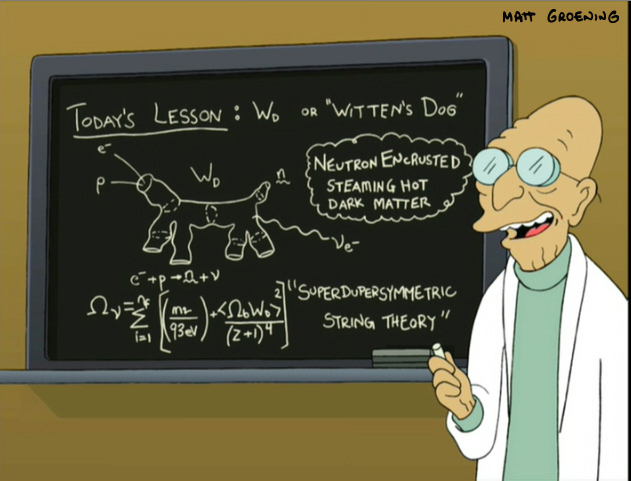 MATT GROENING
TODAY'S LESSON: W_D OR "WITTEN'S DOG"
e⁻
p
W_D
n
NEUTRON ENCRUSTED
STEAMING HOT
DARK MATTER
ν_e⁻
e⁻+p→n+ν
Ω_ν=Σ_{i=1}[(/93eV)+<Ω_b W_D>²/(z+1)⁴]
"SUPERDUPERSYMMETRIC
STRING THEORY"